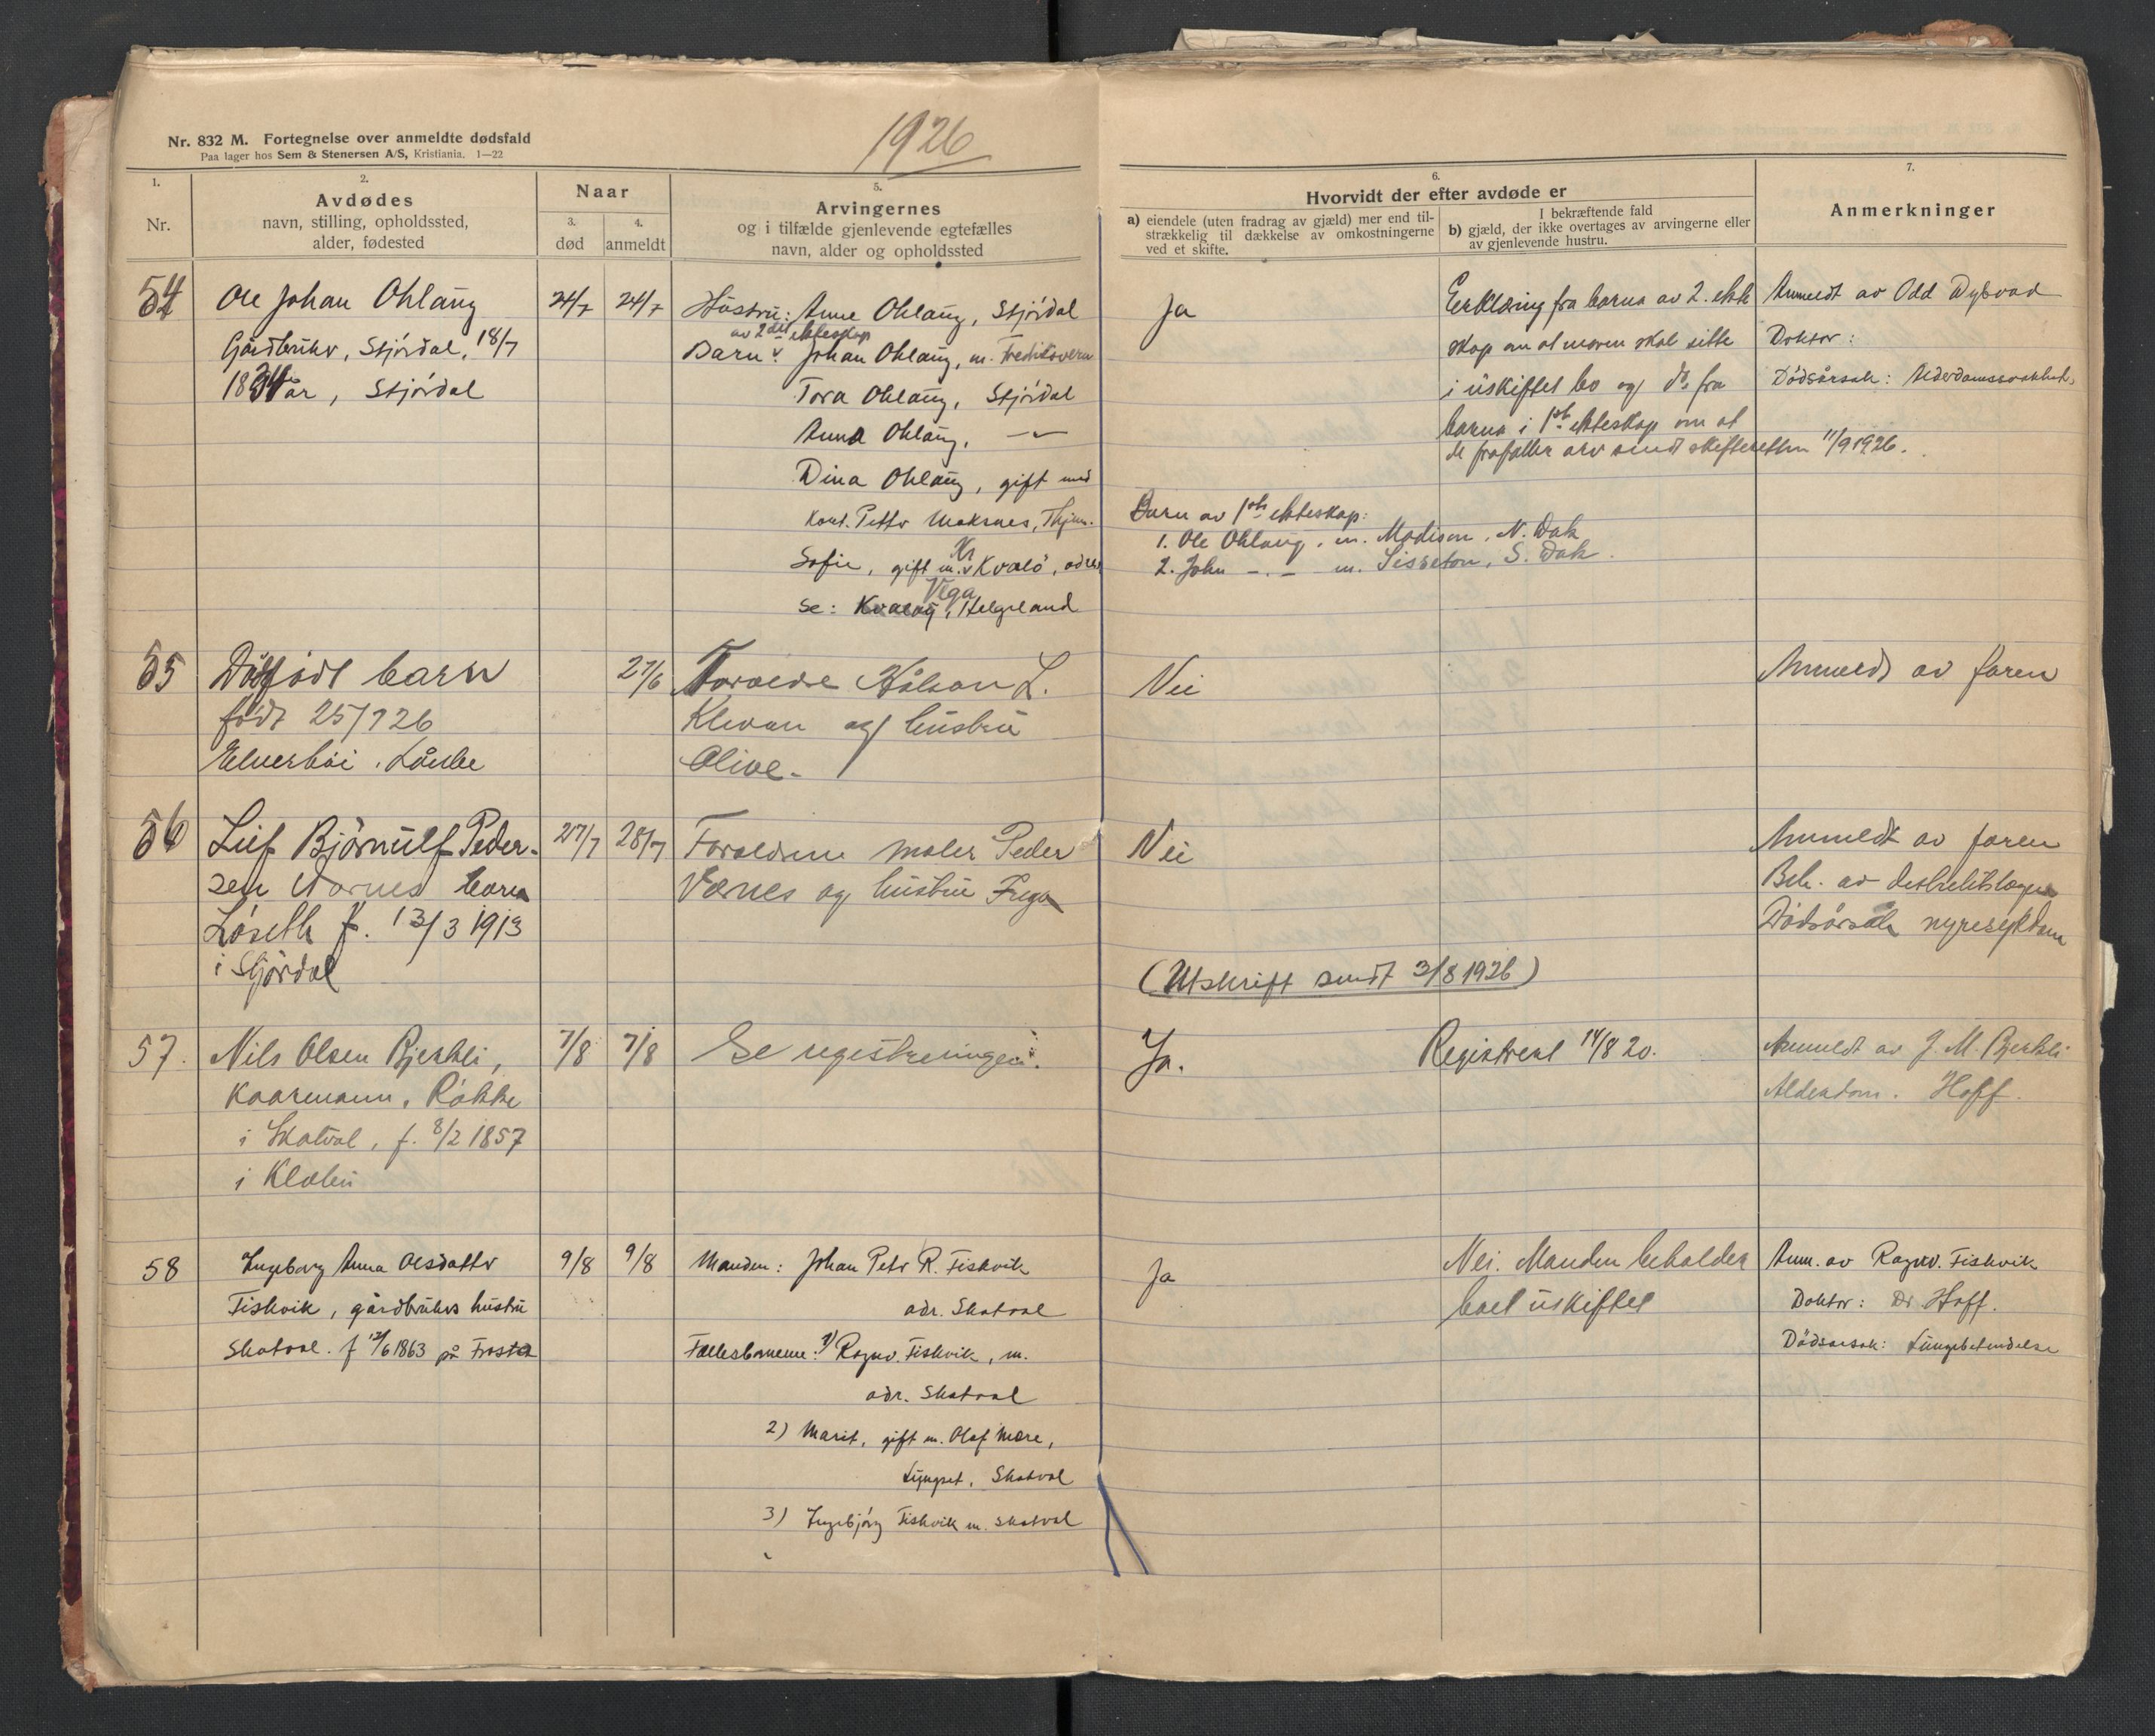 Nr. 832 M. Fortegnelse over anmeldte dødsfald
Paa lager hos Sem & Stenersen A/S, Kristiania. 1—22
1926
1.
Nr.
2.
Avdødes
navn, stilling, opholdssted,
alder, fødested
Naar
3.
død
4.
anmeldt
5.
Arvingernes
og i tilfælde gjenlevende egtefælles
navn, alder og opholdssted
6.
Hvorvidt der efter avdøde er
a) eiendele (uten fradrag av gjæld) mer end til-
strækkelig til dækkelse av omkostningerne
ved et skifte.
I bekræftende fald
b) gjæld, der ikke overtages av arvingerne eller
av gjenlevende hustru.
7.
Anmerkninger
54
Ole Johan Ohlaug
Gårdbruker, Stjørdal, 18/7
1834 år, Stjørdal
24/7
24/7
Hustru: Anne Ohlaug, Stjørdal
av 2det ekteskap
Barn: Johan Ohlaug, m. Fredriksvern
Tora Ohlaug, Stjørdal
Anna Ohlaug, —"—
Dina Ohlaug, gift med
Petter
Sofie, gift m. Kr Kvalø, adres
se: Vega, Helgeland
Ja
Barn av 1ste ekteskap:
1. Ole Ohlaug, m. Madison, N. Dak
2. John —.— m. Sisseton, S. Dak.
Erklæring fra barna av 2. ekte
skap om at moren skal sitte
i uskiftet bo og do fra
barna i 1ste ekteskap om at
de frafaller arv sendt skifteretten 11/9 1926.
Anmeldt av Odd Dybvad
Doktor:
Dødsårsak: Alderdomssvakhet
55
Dødfødt barn
født 25/7 26
Elverhøi, Lånke
27/6
Foreldre Håkon L.
Klevan og hustru
Olive.
Nei
Anmeldt av faren
56
Leif Bjørnulf Peder-
sen Værnes barn
Løseth f. 13/3 1913
i Stjørdal
27/7
28/7
Foreldrene maler Peder
Værnes og hustru
Nei
(Utskrift sendt 3/8 1926)
Anmeldt av faren
Beh. av distriktslægen
Dødsårsak nyresykdom
57.
Nils Olsen Bjerkli,
Kaarmann, Røkke
i Skatval, f. 8/2 1857
i Klæbu
7/8
7/8
Se registreringen.
Ja.
Registrert 14/8 20.
Anmeldt av J. M. Bjerkli
Alderdom. Hoff.
58
Ingeborg Anna Olsdatter
Fiskvik, gårdbrukers hustru
Skatval. f 12/6 1863 på Frosta
9/8
9/8
Manden: Johan Peter R. Fiskvik
adr. Skatval
Fællesbarnene: 1) Ragnv. Fiskvik, m.
adr. Skatval
2) Marit, gift m. Olaf Mære,
Skatval
3) Ingebjørg Fiskvik m. Skatval
Ja
Nei. Manden beholder
boet uskiftet
Anm. av Ragnv. Fiskvik
Doktor: Dr Hoff.
Dødsarsak: Lungebetendelse